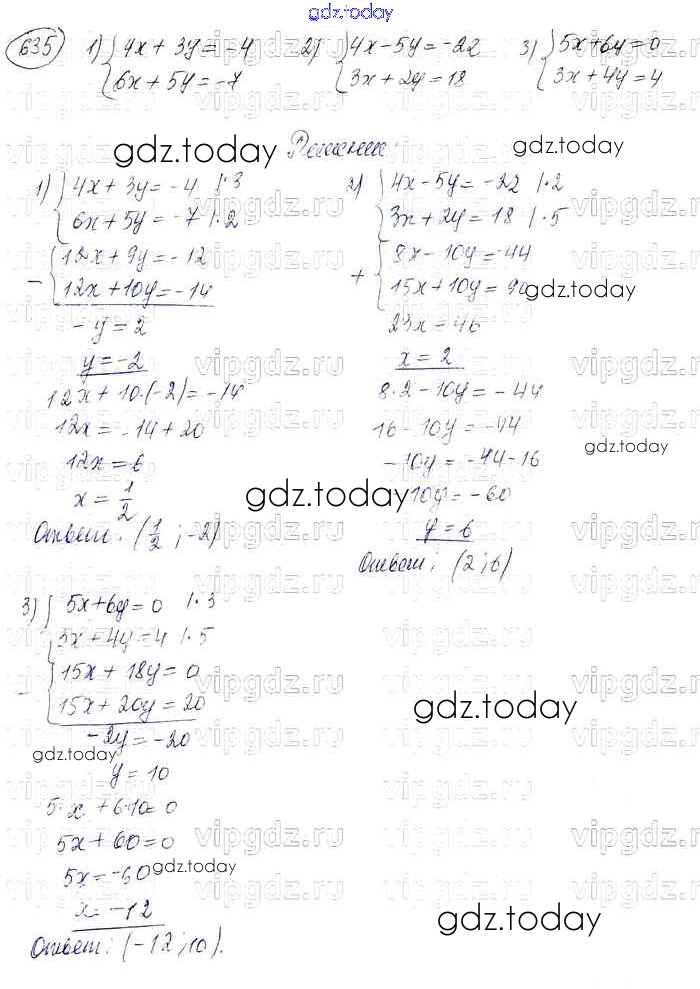 gdz.today
635 1) { 4x + 3y = -4 2) { 4x - 5y = -22 3) { 5x + 6y = 0
6x + 5y = -7 3x + 2y = 18 3x + 4y = 4
gdz.today Решение: gdz.today
1) { 4x + 3y = -4 | · 3
6x + 5y = -7 | · 2
- { 12x + 9y = -12
12x + 10y = -14
- y = 2
y = -2
12x + 10 · (-2) = -14
12x = -14 + 20
12x = 6
x = 1/2
Ответ: (1/2 ; -2)
2) { 4x - 5y = -22 | · 2
3x + 2y = 18 | · 5
+ { 8x - 10y = -44
15x + 10y = 90
gdz.today
23x = 46
x = 2
8 · 2 - 10y = -44
16 - 10y = -44
gdz.today
-10y = -44 - 16
gdz.today
10y = -60
y = 6
Ответ: (2 ; 6)
3) { 5x + 6y = 0 | · 3
3x + 4y = 4 | · 5
- { 15x + 18y = 0
15x + 20y = 20
gdz.today
-2y = -20
gdz.today
y = 10
5 · x + 6 · 10 = 0
5x + 60 = 0
5x = -60
gdz.today
x = -12
gdz.today
Ответ: (-12 ; 10).
vipgdz.ru